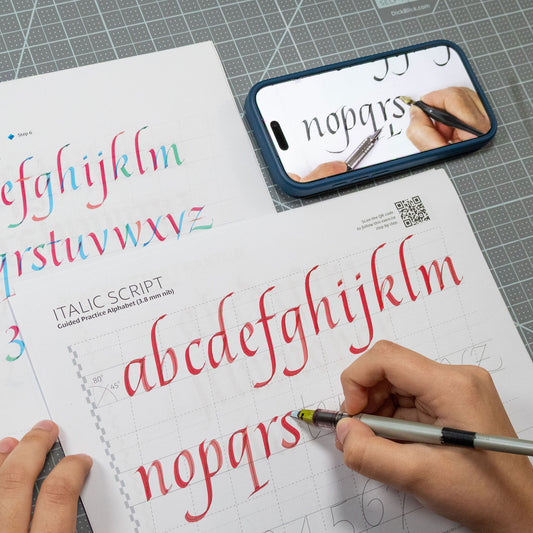 DickBlick.com
Step 6
efghijklm
qrstuvwxyz
3
nopqrs
Scan the QR code
to follow this exercise
step by step.
ITALIC SCRIPT
Guided Practice Alphabet (3.8 mm nib)
80° 45°
abcdefghijklm
nopqrst
z
456